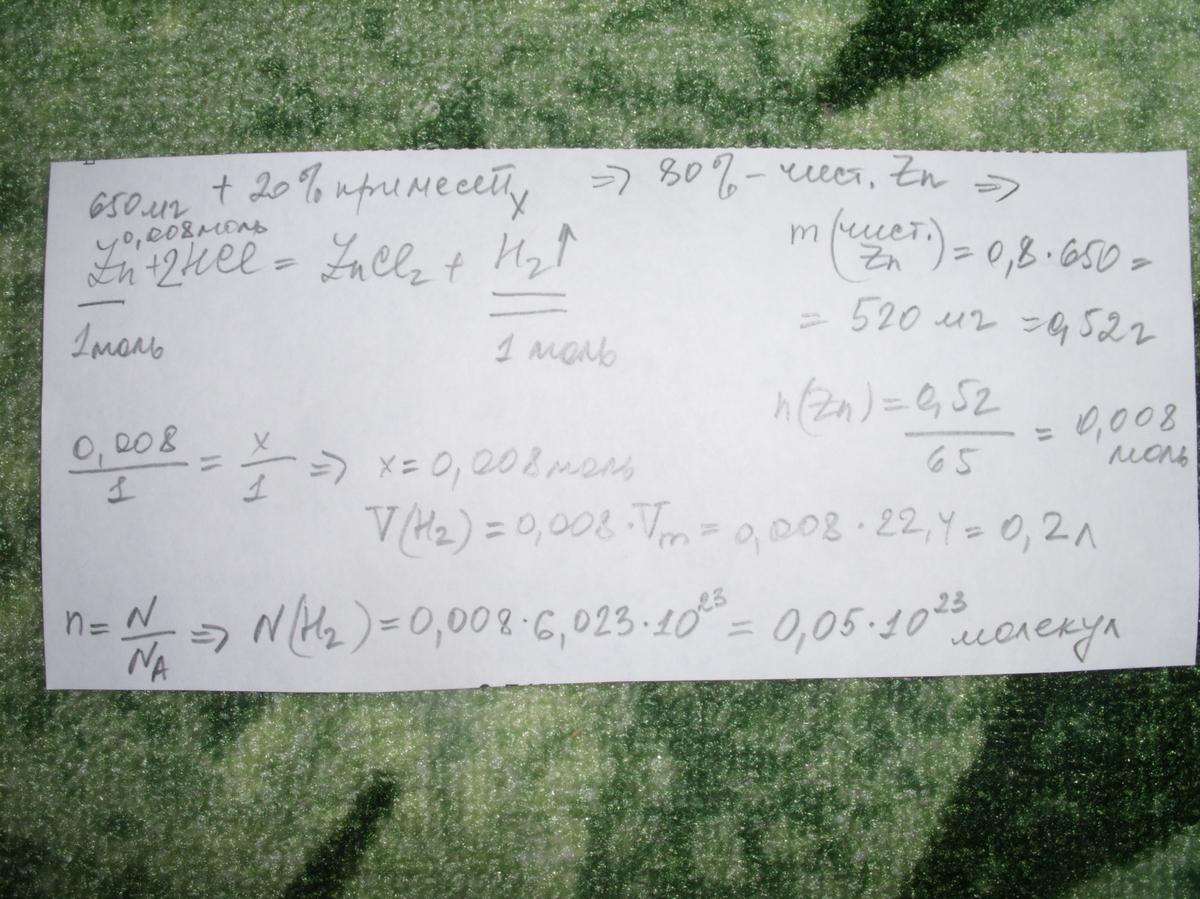 650мг + 20% примесей ⇒ 80% - чист. Zn ⇒
0,008моль x
Zn + 2HCl = ZnCl₂ + H₂↑
1моль 1 моль
m (чист. Zn) = 0,8·650 =
= 520 мг = 0,52г
n(Zn) = 0,52/65 = 0,008 моль
0,008/1 = x/1 ⇒ x = 0,008моль
V(H₂) = 0,008·Vm = 0,008·22,4 = 0,2л
n = N/NA ⇒ N(H₂) = 0,008·6,023·10²³ = 0,05·10²³ молекул